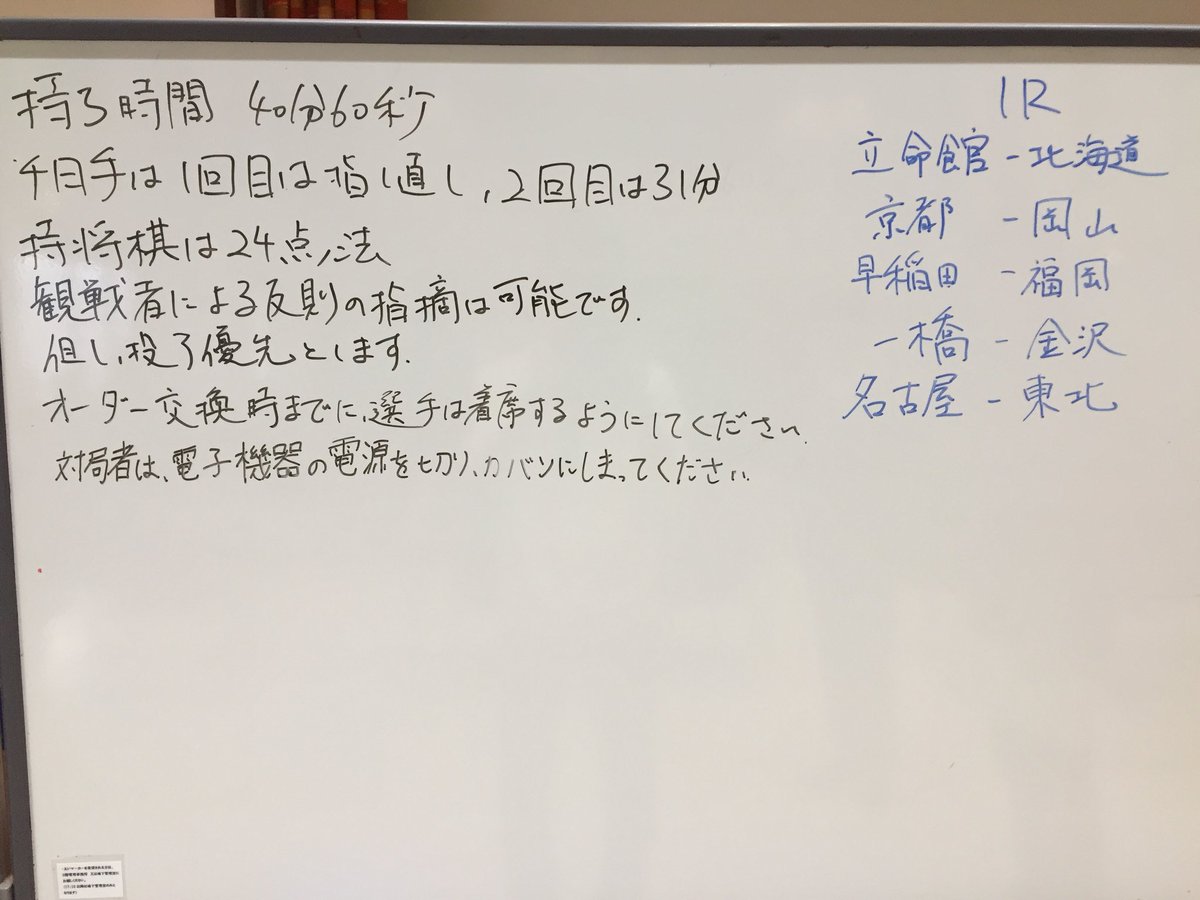 持ち時間 40分60秒
千日手は1回目は指し直し、2回目は31分
持将棋は24点法
観戦者による反則の指摘は可能です.
但し、投了優先とします.
オーダー交換時までに、選手は着席するようにしてください.
対局者は、電子機器の電源を切り、カバンにしまってください.
1R
立命館 - 北海道
京都 - 岡山
早稲田 - 福岡
一橋 - 金沢
名古屋 - 東北